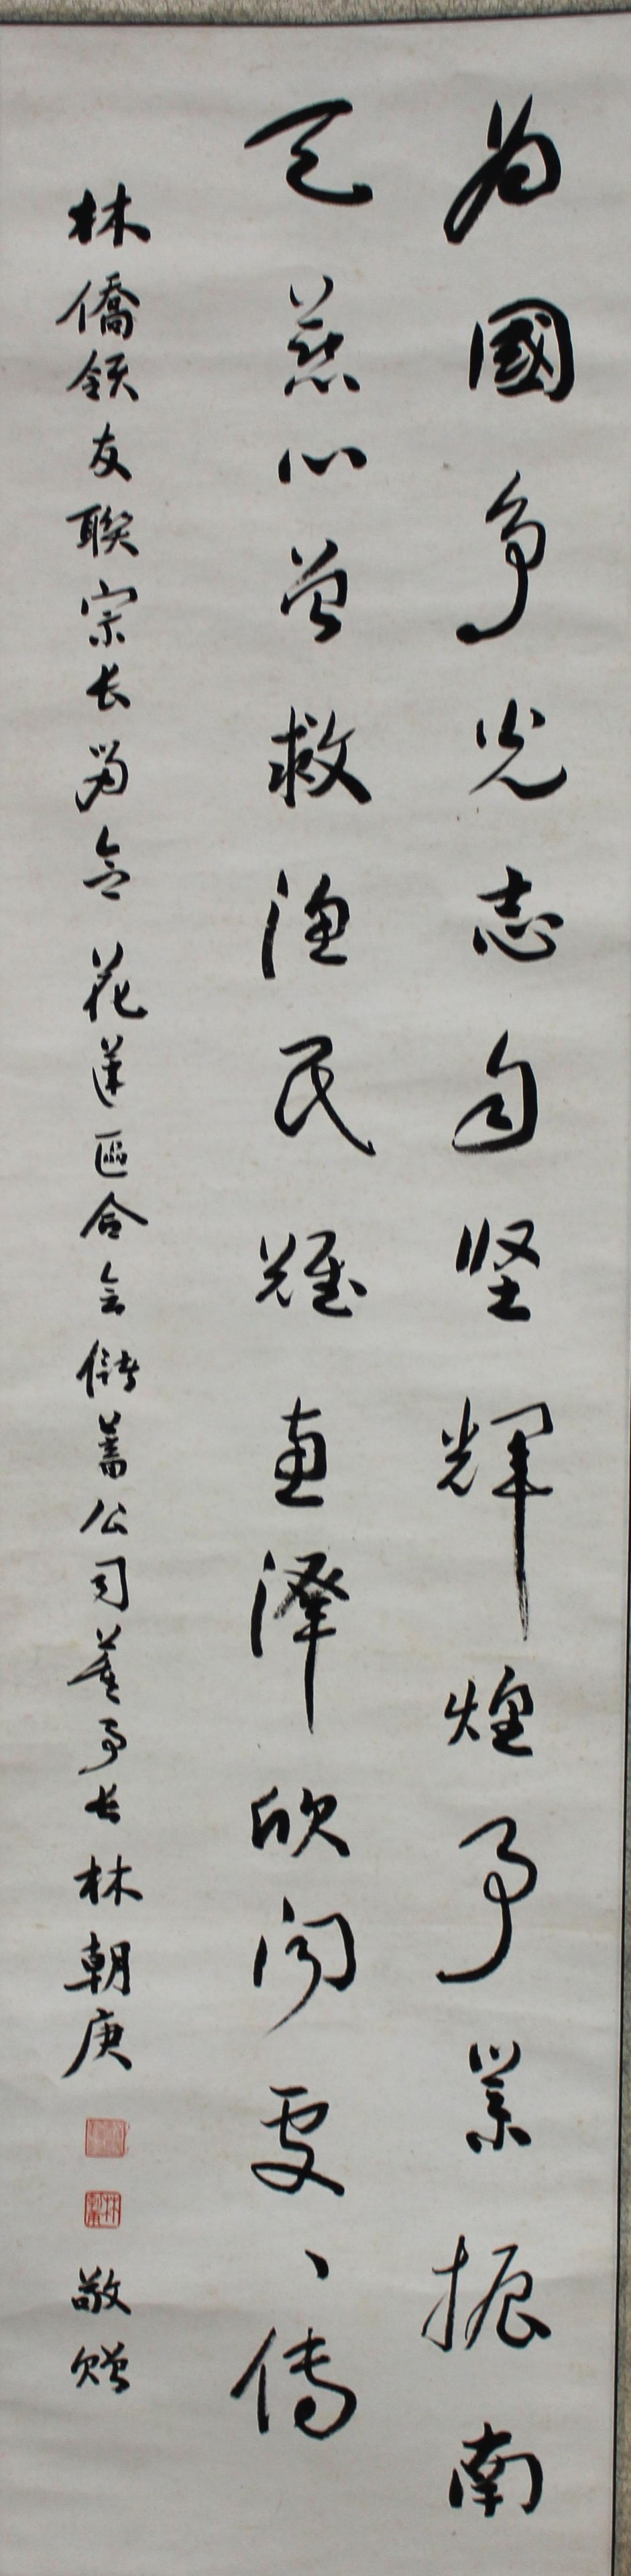 為國爭光志向堅輝煌事業振南
天慈心曾救漁民難惠澤欣聞處、傳
林僑領友聯宗長留念 花蓮區合會儲蓄公司董事長林朝庚 敬贈